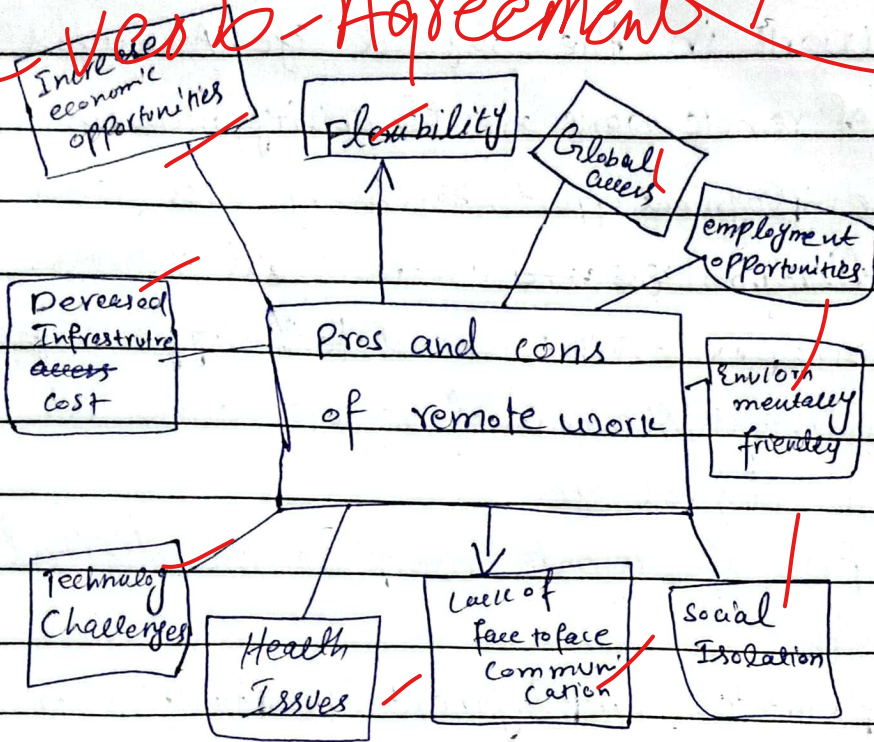 Verb-Agreement
Increase
economic
opportunities
Flexibility
Global
access
employment
opportunities
Dereased
Infrastrulre
access
cost
Pros and cons
of remote work
Enviorn
mentally
friendly
Technology
Challenges
Health
Issues
Lack of
face to face
communi
cation
Social
Isolation